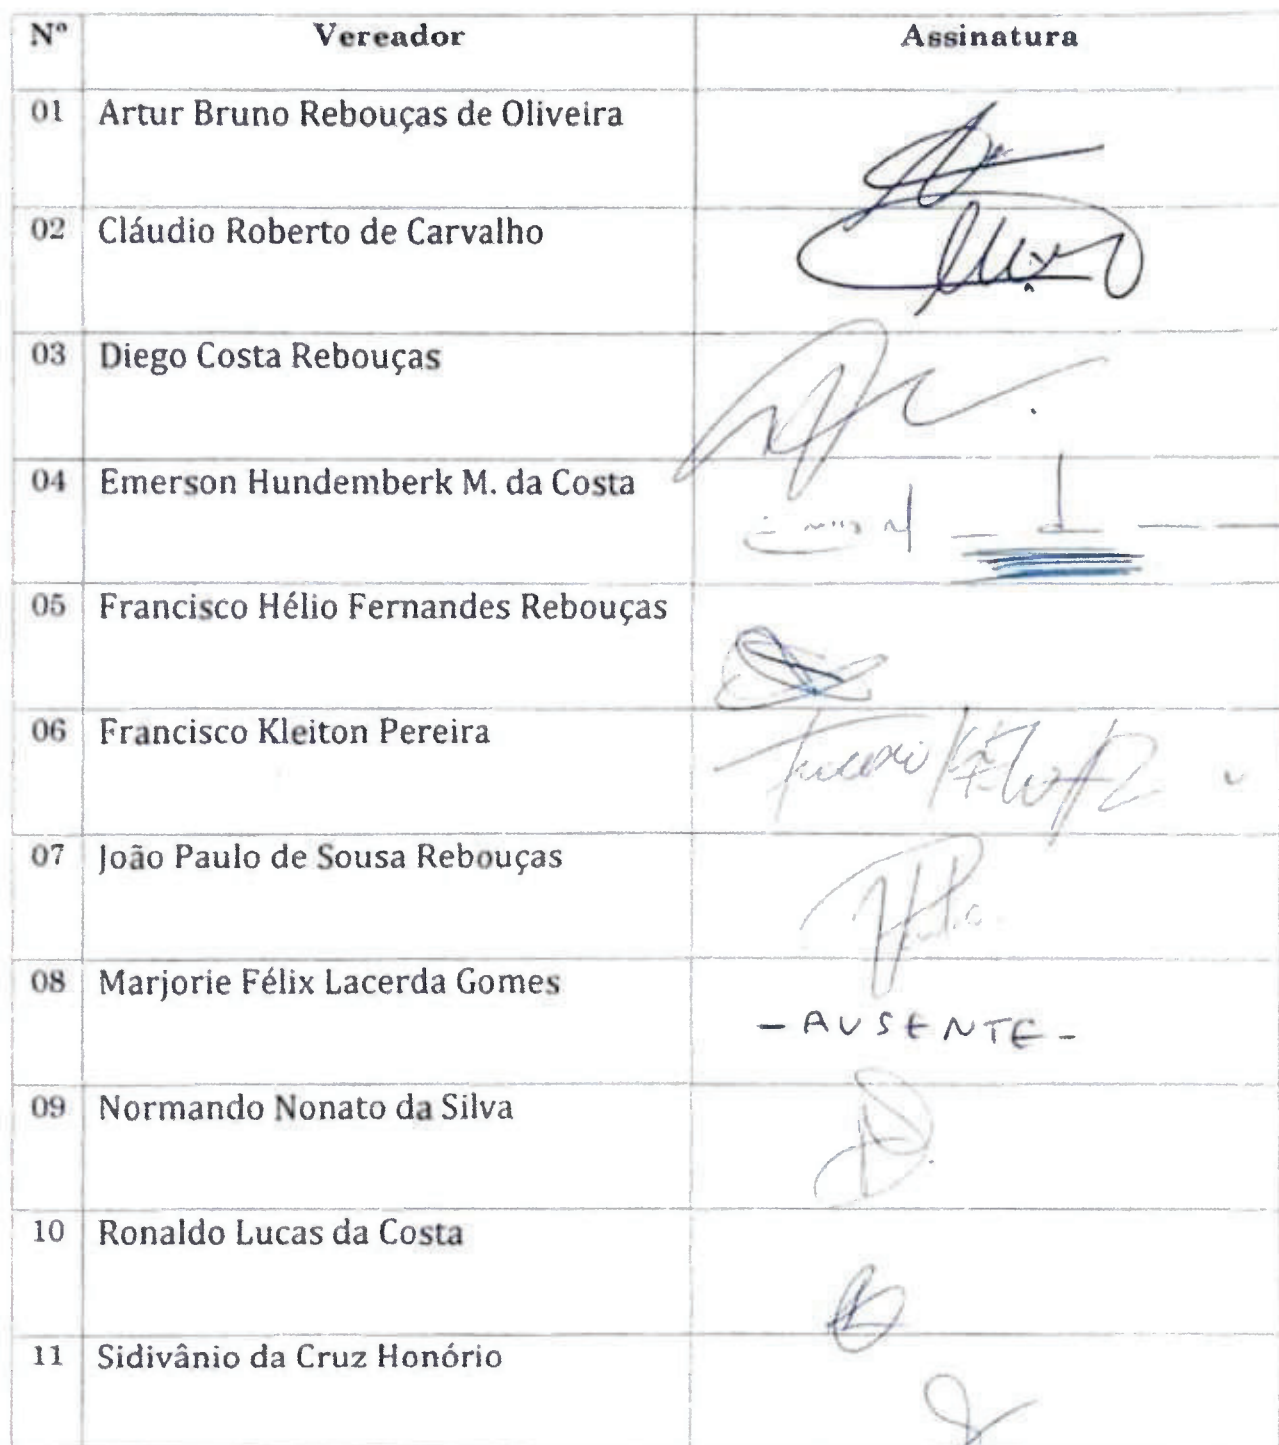 Nº Vereador Assinatura
01 Artur Bruno Rebouças de Oliveira
02 Cláudio Roberto de Carvalho
03 Diego Costa Rebouças
04 Emerson Hundemberk M. da Costa
05 Francisco Hélio Fernandes Rebouças
06 Francisco Kleiton Pereira
07 João Paulo de Sousa Rebouças
08 Marjorie Félix Lacerda Gomes
- AUSENTE -
09 Normando Nonato da Silva
10 Ronaldo Lucas da Costa
11 Sidivânio da Cruz Honório